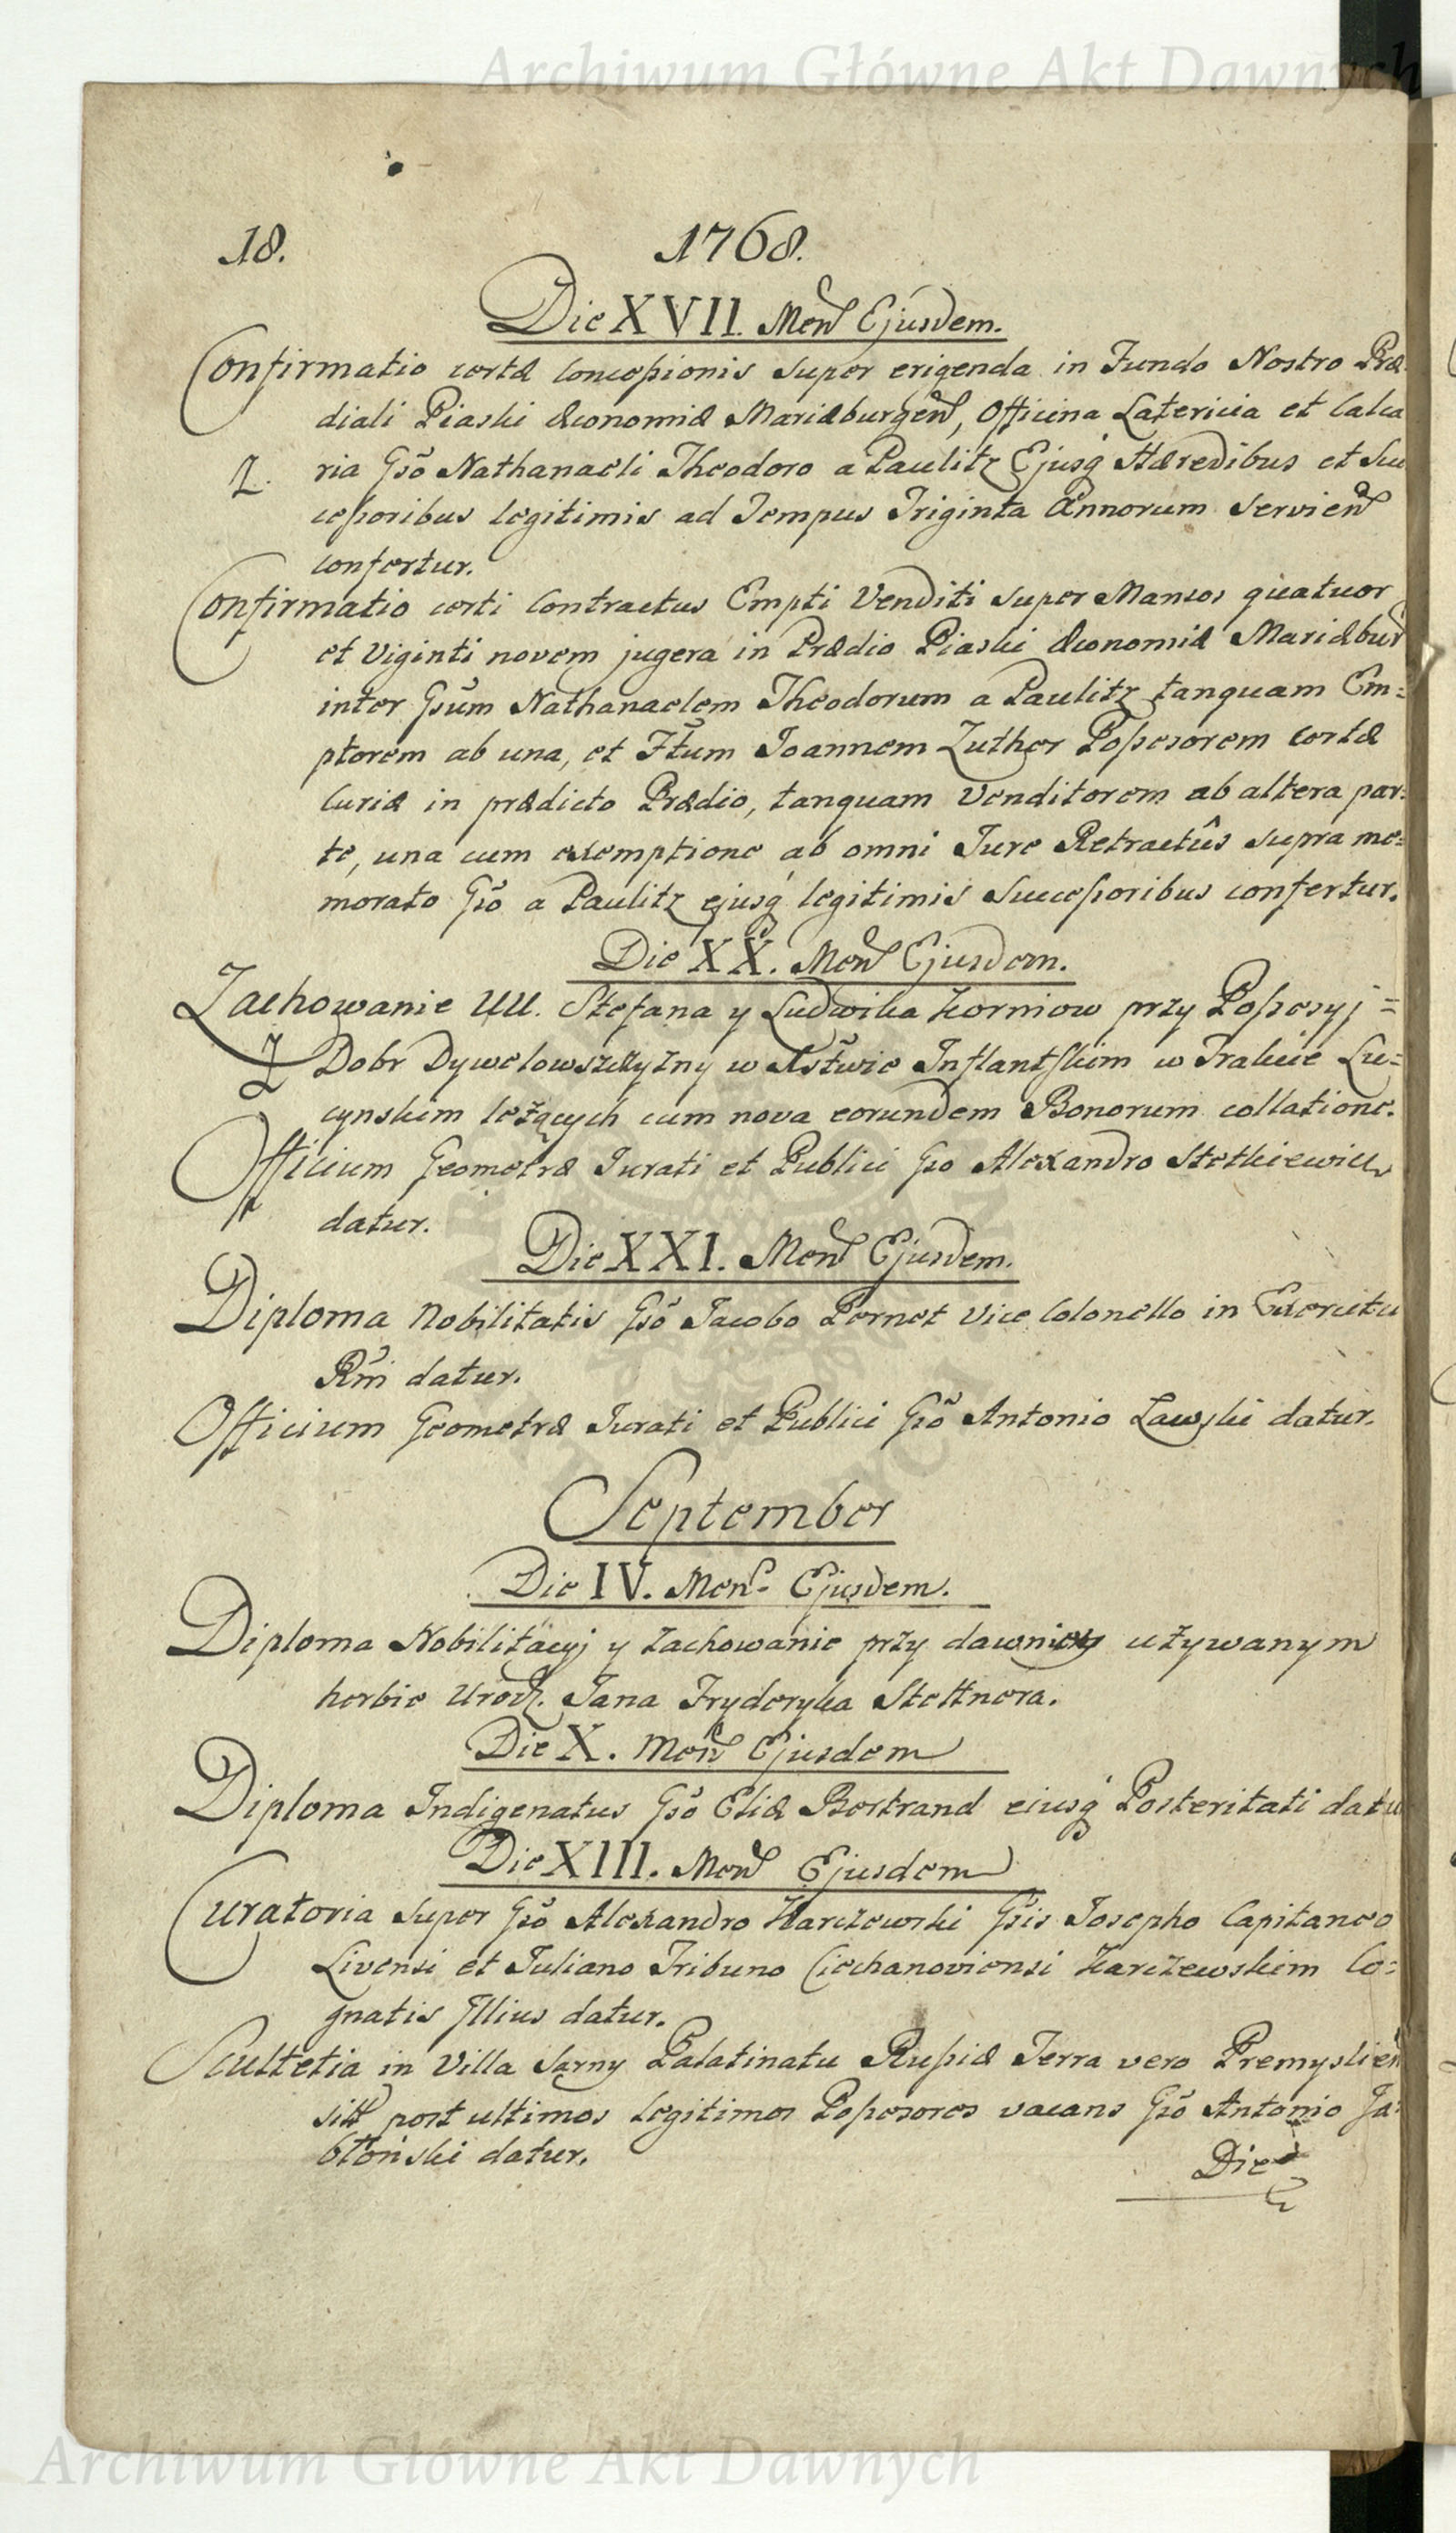 Archiwum Główne Akt Dawnych
18. 1768.
Die XVII. Men̄ Ejusdem.
Confirmatio certæ Concessionis super erigenda in Fundo Nostro Præ
diali Piaski Œconomiæ Mariæburgen̄, Officina Latericia et Calca
ria Gsō Nathanaeli Theodoro a Paulitz Ejusq̓ Hæredibus et Suc
cessoribus legitimis ad Tempus Triginta Annorum servien̄
confertur.
Confirmatio certi Contractus Empti Venditi super Mansos quatuor
et Viginti novem jugera in Prædio Piaski Œconomiæ Mariæbur̄
inter Gsūm Nathanaelem Theodorum a Paulitz tanquam Em=
ptorem ab una, et Ftūm Joannem Luther Possessorem certæ
Curiæ in prædicto Prædio, tanquam Venditorem ab altera par=
te, una cum exemptione ab omni Jure Retractûs supra me=
morato Gsō a Paulitz ejusq̓ legitimis Successoribus confertur.
Die XX. Men̄ Ejusdem.
Zachowanie UU. Stefana y Ludwika Korniow przy Possesyj=
Dobr Dywelowszczyzny w Xstwie Inflantskim w Trakcie Lu=
cynskim leżących cum nova eorundem Bonorum collatione.
Officium Geometræ Jurati et Publici Gso Alexandro Stetkiewicz
datur.
Die XXI. Men̄ Ejusdem.
Diploma Nobilitatis Gsō Jacobo Pernet Vice Colonello in Exercitu
Rm̄i datur.
Officium Geometræ Jurati et Publici Gsō Antonio Lawski datur.
September
Die IV. Men̄ Ejusdem.
Diploma Nobilitacyj y zachowanie przy dawniey używanym
herbie Urodz. Jana Fryderyka Stettnera.
Die X. Men̄ Ejusdem
Diploma Indigenatus Gsō Eliæ Bertrand eiusq̓ Posteritati datu
Die XIII. Men̄ Ejusdem
Curatoria super Gsō Alexandro Karczewski Gsis Josepho Capitaneo
Livensi et Juliano Tribuno Ciechanoviensi Karczewskim Co=
gnatis Illius datur.
Scultetia in Villa Sarny Palatinatu Russiæ Terra vero Premyslien̄
sitt post ultimos legitimos Possesores vacans Gsō Antonio Ja=
błoński datur.
Die
Archiwum Główne Akt Dawnych